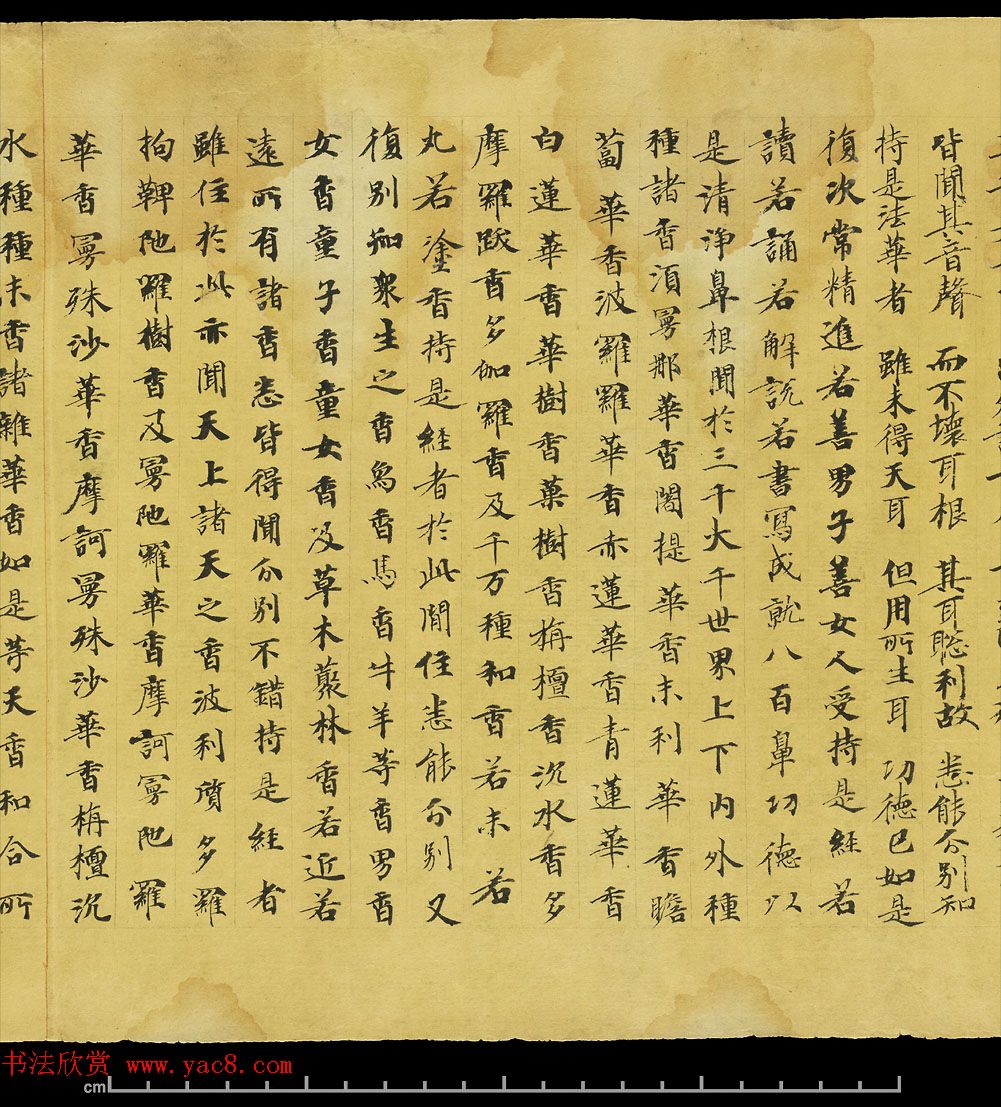 皆聞其音聲 而不壞耳根 其耳聡利故 悉能分別知
持是法華者 雖未得天耳 但用所生耳 功徳已如是
復次常精進若善男子善女人受持是経若
讀若誦若解說若書寫成就八百鼻功徳以
是清浄鼻根聞於三千大千世界上下内外種
種諸香湏㬅那華香闍提華香末利華香瞻
蔔華香波羅羅華香赤蓮華香青蓮華香
白蓮華香華樹香菓樹香栴檀香沉水香多
摩羅跋香多伽羅香及千万種和香若末若
丸若塗香持是経者於此間住悉能分別又
復別知衆生之香烏香馬香牛羊等香男香
女香童子香童女香及草木藂林香若近若
遠所有諸香悉皆得聞分別不錯持是経者
雖住於此亦聞天上諸天之香波利質多羅
拘鞞陁羅樹香及㬅陁羅華香摩訶㬅陁羅
華香㬅殊沙華香摩訶㬅殊沙華香栴檀沉
水種種末香諸雜華香如是等天香和合所
书法欣赏 www.yac8.com
cm